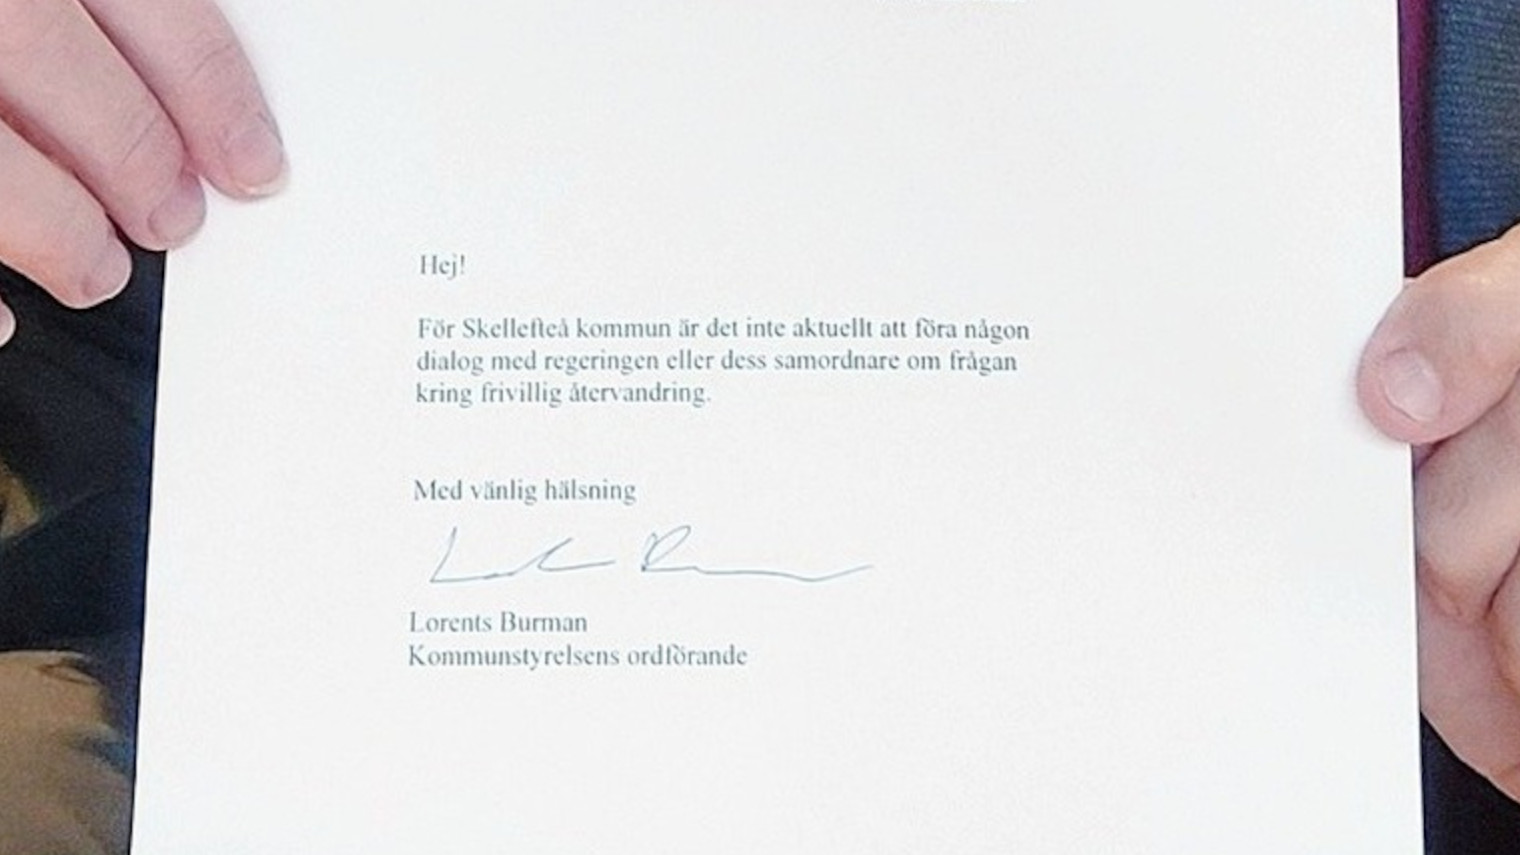 Hej!
För Skellefteå kommun är det inte aktuellt att föra någon
dialog med regeringen eller dess samordnare om frågan
kring frivillig återvandring.
Med vänlig hälsning
Lorents Burman
Kommunstyrelsens ordförande